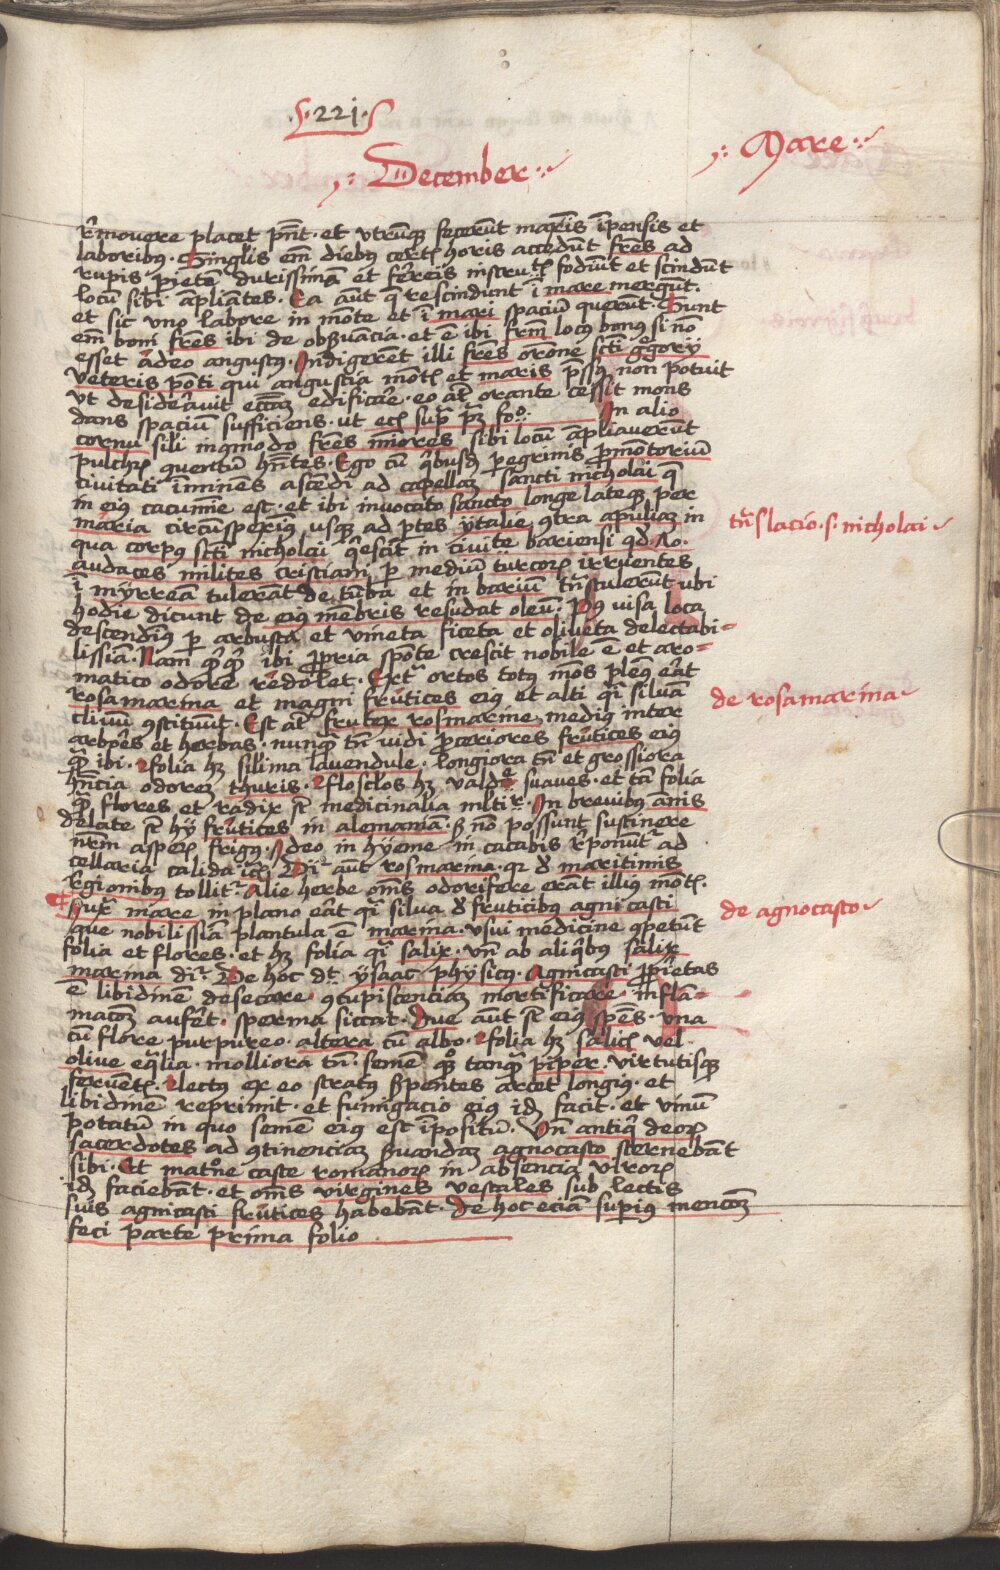 ·221·
December
Mare
rͤmovere placet pn̄t · et vtrūqȝ fecerūt marīs īpensis et
laboribꝰ · Singulis em̄ diebus certꝭ horis accedūt fres ad
rupis pietem durissimā et ferreis instrutꝭ fodiūt et scindūt
locū sibi āpliātes · Ea aūt q̄ rescindunt ī mare mergūt ·
et sic vno labore in mōte et ī mari spaciū querūt · Sunt
em̄ boni fres ibi de obẜuancia · et ē ibi frm̄ locꝰ bonꝰ si nō
esset adeo angustꝰ · Indigerēt illi fres orōne scti gͦgorij
veteris ponti qui angustia mōtꝭ et maris non potuit
vt desideravit edificare · eo āt orante cessit mons
dans spaciū sufficiens · vt sup̄ · In alio
cornu sili in qͦ modo fres miores sibi locū āpliaverūt
pulchrꝝ quentū hn̄tes · Ego cū qͥbusdā peregrinis promōtoriū
civitati iminēs ascēdi ad capellaȝ sancti nicholai q̄
in eiꝰ cacumīe est · et ibi invocato sancto longe lateqȝ per
maria circūspexiꝰ usqȝ ad ptes ytalie ꝯtra apuliaȝ in
qua corpꝰ scti nicholai qͥescit in civite bariensi qd · Ao ·
audaces milites cristiani p mediū turcorꝝ irruentes
ī myrreā tulerāt de tūba et in bariū trāstulerūt ubi
hodie dicunt de eiꝰ mēbris resudat oleū · Pꝰ visa loca
descendimꝰ p arbusta et vineta ficeta et oliveta delectabi-
lissīa · Nam qͥcqͥd ibi ꝓpria spōte crescit nobile ē et aro-
matico odore redolet · Extra ortos totꝰ mōs plenꝰ erāt
rosamarina et magni frutices eiꝰ et alti qͣi silvā
clivū ꝯstituūt · Est āt frutex rosmarine mediꝰ inter
arbores et herbas · nunqͣ tn̄ vidi ꝓceriores frutices eiꝰ
qͣ ibi · folia hꝫ silima lavendule · longiora tn̄ et grossiora
hn̄cia odorem thuris · flosclos hꝫ valde suaves · et tā folia
qͣ flores et radix sꝭ medicinalia mltir · In brevibꝰ annis
delate sꝭ hij frutices in alemaniā · ẜ nō possunt sustinere
nrm̄ asperꝝ frigꝰ · Ideo in hyeme in cacabis rponūt ad
cellaria calida · Di aūt rosmarina · qꝛ ꝺ maritimis
rgionibus tollit · Alie herbe om̄s odorifere erāt illiꝰ mōtꝭ ·
Iuxͣ mare in plano erāt qͣi silva ꝺ fruticibꝰ agni casti
que nobilissīa plantula ē marina · vsui medicine ꝯpetūt
folia et flores · et hꝫ folia qͣi salix · vn̄ ab aliqͥbus salix
marina di · De hoc dt ysaac physicꝰ · Agnicasti ꝓprietas
ē libidinē desecare · ꝯcupiscenciaȝ mortificare · inflā-
macoeȝ aufert · sperma siccat · Due aūt sꝭ eiꝰ spēs · vna
cū flore purpureo · altera cū albo · folia hꝫ salicꝭ vel
olive eqͣlia · molliora tn̄ · semē qͦȝ tanqͣ piper · virtutisqȝ
ferventꝭ · lectꝰ ex eo stratꝰ ẜpentes arcet longiꝰ · et
libidinē reprimit · et fumigacio eiꝰ idȝ facit · et vinū
potatū in quo semē eiꝰ est īpositū · Vn̄ antiqͥ deorꝝ
sacerdotes ad ꝯtinenciaȝ ẜvandaȝ agnocasto sternebāt
sibi · Et matrone caste romanorꝝ in absencia virorꝝ
idȝ faciebāt · et om̄s virgines vestales sub lectis
suis agnicasti frutices habebāt · de hoc eciā superiꝰ mencoeȝ
feci parte prima folio
trāslacio · s · nicholai
de rosamarina
de agnocasto